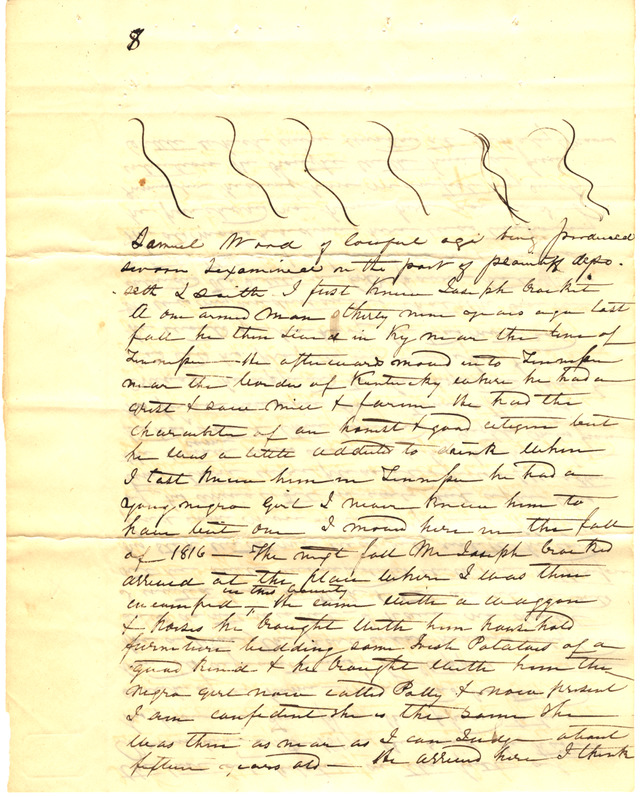 8
Samuel Wood of lawful age being produced
sworn & examined on the part of plaintiff depo-
seth & saith I first knew Joseph Crocket
A one armed man thirty nine years ago last
fall he then lived in Ky near the line of
Tennessee — He afterwards moved into Tennessee
near the border of Kentucky where he had a
grist & saw mill & farm He had the
character of an honest & good citizen but
he was a little addicted to drink When
I last knew him in Tennessee he had a
young negro girl I never knew him to
have but one I moved here in the fall
of 1816 — The next fall Mr Joseph Crocket
arrived at the place where I was then
in this county
encamped, He came with a waggon
& horses he brought with him household
furniture bedding some Irish Potatoes of a
good kind & he brought with him the
negro girl now called Polly & now present
I am confident she is the same She
was then as near as I can Judge about
fifteen years old — He arrived here I think